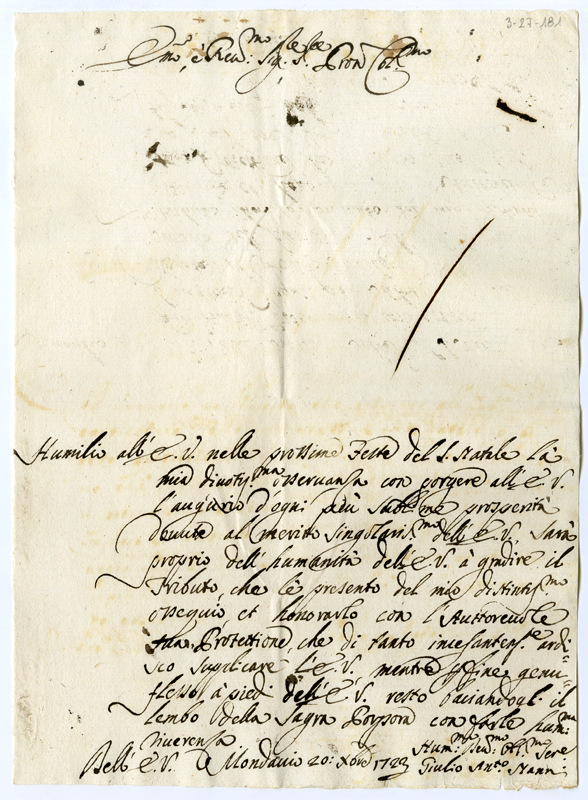 3-27-181
Em.o, e Rev.mo Sig.r Pron Col.mo
Humilio all'E.V. nelle prossime Feste del S. Natale la
mia divotis.ma osservanza con porgere all'E.V.
l'augurio d'ogni più sublime prosperità
dovute al merito singolaris.mo dell'E.V. Sarà
proprio dell'humanità dell'E.V. à gradire il
Tributo, che le presento del mio distintis.mo
ossequio, et honorarlo con l'Auttorevole
sua Protettione, che di tanto incesantem.te ardi=
sco supplicare l'E.V., mentre per fine genu=
flesso à piedi dell'E.V. resto baciandogli il
lembo della Sagra Porpora con farle hum.ma
riverenza
Dell'E.V. Mondavio 20: Xbre 1723
Hum.mo Dev.mo Obl.mo Serv.e
Giulio Ant.o Nanni